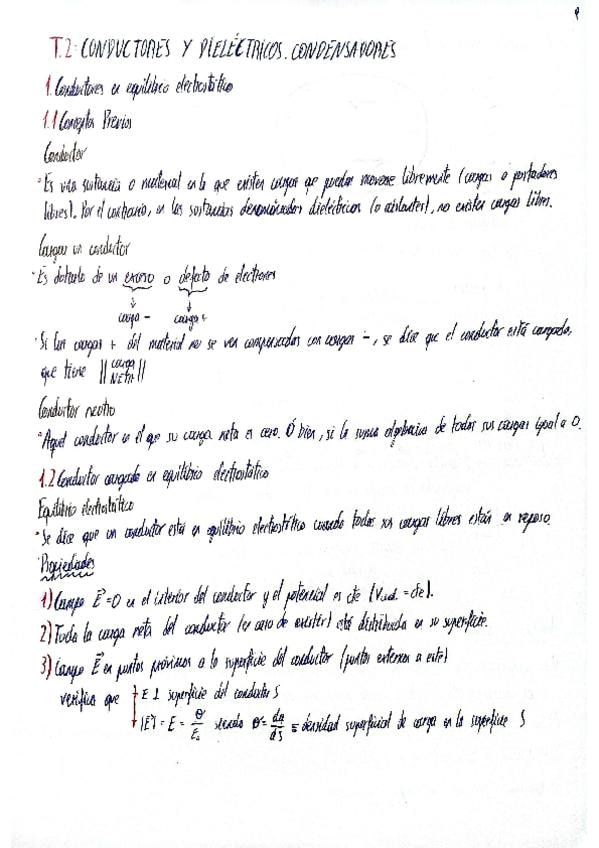 T.2: CONDUCTORES Y DIELÉCTRICOS. CONDENSADORES
1. Conductores en equilibrio electrostático
1.1 Conceptos Previos
Conductor
· Es una sustancia o material en la que existen cargas que puedan moverse libremente (cargas o portadores
libres). Por el contrario, en las sustancias denominadas dieléctricas (o aislantes), no existen cargas libres.
Cargar un conductor
· Es dotarlo de un exceso o defecto de electrones
carga - carga +
· Si las cargas + del material no se ven compensadas con cargas -, se dice que el conductor está cargado,
que tiene || carga NETA ||
Conductor neutro
· Aquel conductor en el que su carga neta es cero. Ó bien, si la suma algebraica de todas sus cargas igual a 0.
1.2 Conductor cargado en equilibrio electrostático
Equilibrio electrostático
· Se dice que un conductor está en equilibrio electrostático cuando todas sus cargas libres están en reposo.
Propiedades
1) Campo E⃗=0 en el interior del conductor y el potencial es cte (Vcond. = cte).
2) Toda la carga neta del conductor (en caso de existir) está distribuida en su superficie.
3) Campo E⃗ en puntos próximos a la superficie del conductor (puntos externos a este)
verifica que E ⊥ superficie del conductor S
|E⃗| = E = σ/ε₀ siendo σ = dq/dS ≡ densidad superficial de carga en la superficie S